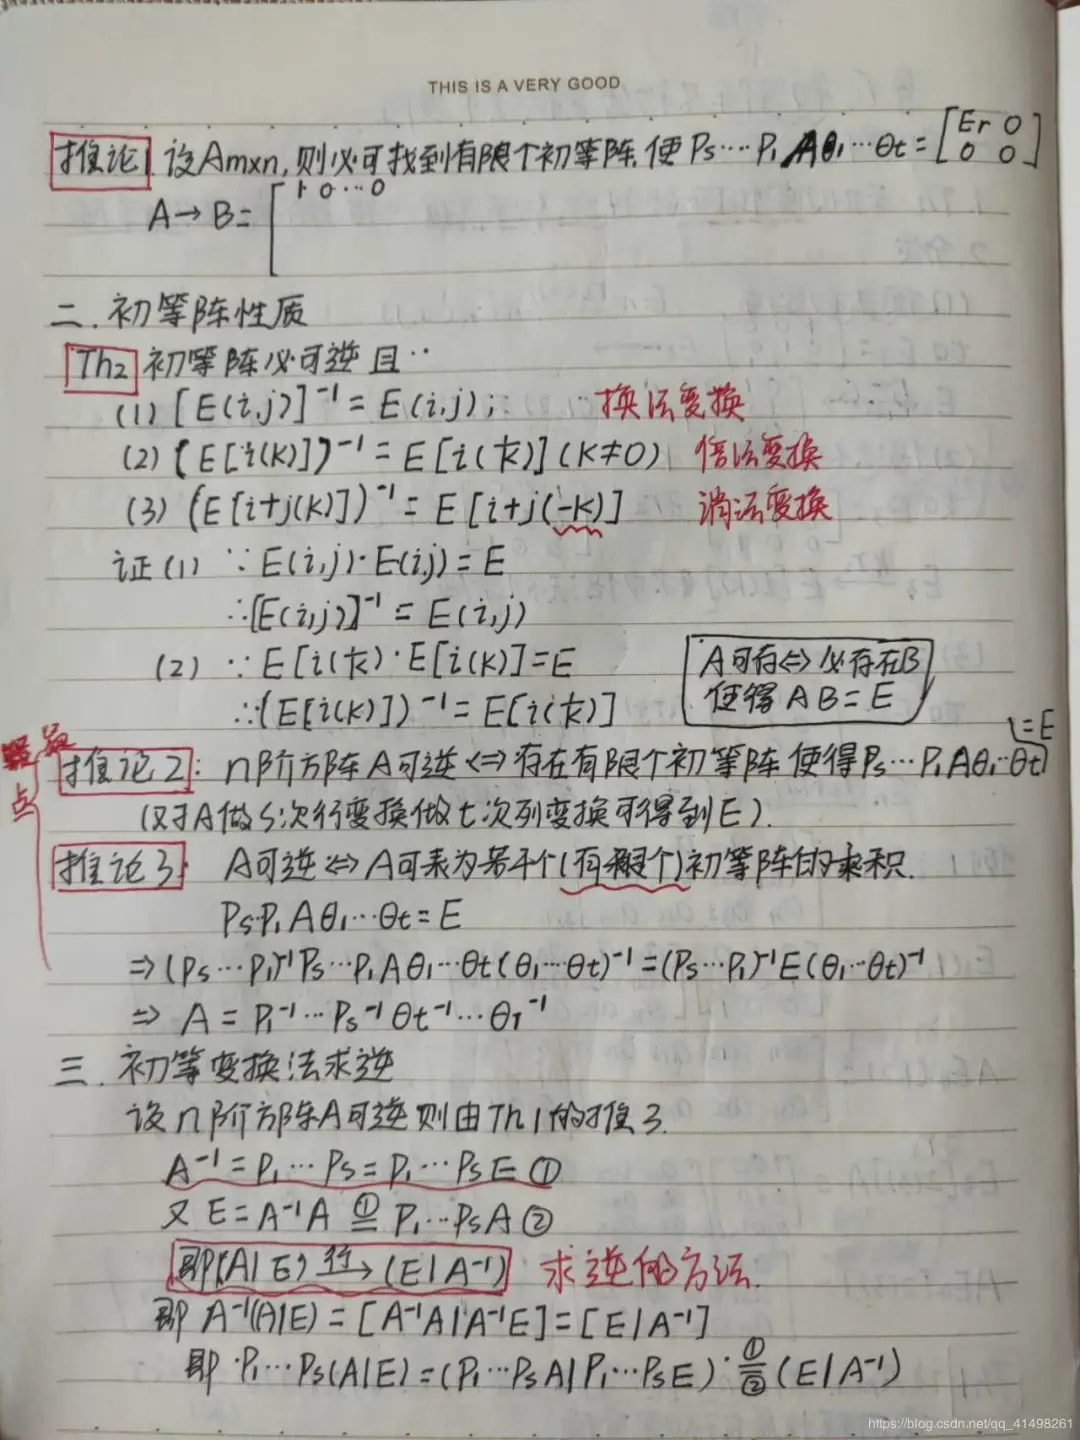 THIS IS A VERY GOOD
推论1 设Am×n,则必可找到有限个初等阵,使 Ps····P1 Aθ1···θt = [Er 0
0 0]
A→B=[1 0 ··· 0
二.初等阵性质
Th2 初等阵必可逆且··
(1) [E(i,j)]⁻¹ = E(i,j); 换法变换
(2) (E[i(k)])⁻¹ = E[i(1/k)] (k≠0) 倍法变换
(3) (E[i+j(k)])⁻¹ = E[i+j(-k)] 消法变换
证(1) ∵E(i,j)·E(i,j)=E
∴[E(i,j)]⁻¹ = E(i,j)
(2) ∵E[i(1/k)·E[i(k)]=E
∴(E[i(k)])⁻¹ = E[i(1/k)]
A可存⇔必存在B
使得 AB=E
点
推论2: n阶方阵A可逆⇔存在有限个初等阵使得Ps···P1Aθ1··θt =E
(对A做s次行变换做t次列变换可得到E).
推论3 A可逆⇔A可表为若干个(有限个)初等阵的乘积.
Ps·P1Aθ1···θt=E
⇒(Ps···P1)⁻¹Ps···P1Aθ1···θt(θ1···θt)⁻¹=(Ps···P1)⁻¹E(θ1···θt)⁻¹
⇒ A = P1⁻¹···Ps⁻¹θt⁻¹···θ1⁻¹
三.初等变换法求逆
设n阶方阵A可逆则由Th1的推3.
A⁻¹=P1···Ps=P1···PsE①
又 E=A⁻¹A ①= P1···PsA②
即(A|E) 行→ (E|A⁻¹) 求逆的方法.
即 A⁻¹(A|E)=[A⁻¹A|A⁻¹E]=[E|A⁻¹]
即·P1···Ps(A|E)=(P1···PsA|P1···PsE) ①=② (E|A⁻¹)
https://blog.csdn.net/qq_41498261